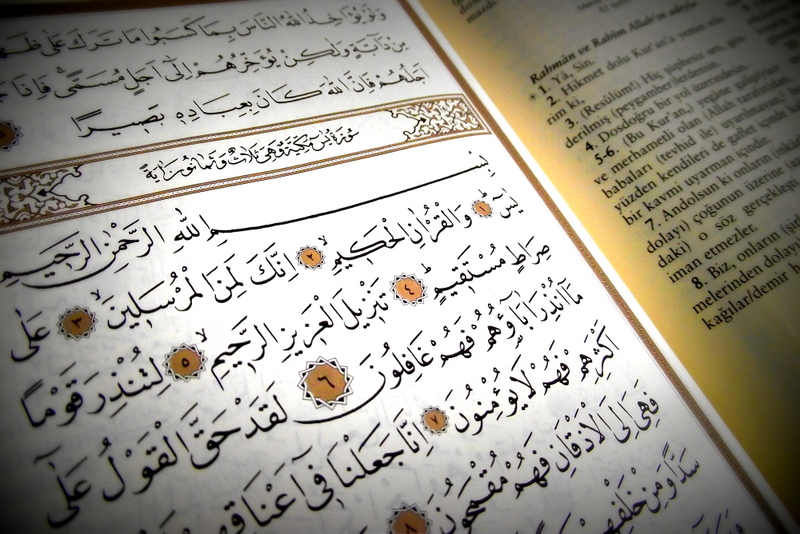 وَلَوْ يُؤَاخِذُ اللّٰهُ النَّاسَ بِمَا كَسَبُوا مَا تَرَكَ عَلٰى
مِنْ دَٓابَّةٍ وَلٰكِنْ يُؤَخِّرُهُمْ اِلٰٓى اَجَلٍ مُسَمًّى فَاِذَا
اَجَلُهُمْ فَاِنَّ اللّٰهَ كَانَ بِعِبَادِه۪ بَص۪يرًا
سُورَةُ يٰسٓ مَكِّيَّةٌ وَهِيَ ثَلَاثٌ وَثَمَانُونَ اٰيَةً
بِسْمِ اللّٰهِ الرَّحْمٰنِ الرَّح۪يمِ
يٰسٓ ١ وَالْقُرْاٰنِ الْحَك۪يمِ ٢ اِنَّكَ لَمِنَ الْمُرْسَل۪ينَ ٣ عَلٰى
صِرَاطٍ مُسْتَق۪يمٍ ٤ تَنْز۪يلَ الْعَز۪يزِ الرَّح۪يمِ ٥ لِتُنْذِرَ قَوْمًا
مَٓا اُنْذِرَ اٰبَٓاؤُ۬هُمْ فَهُمْ غَافِلُونَ ٦ لَقَدْ حَقَّ الْقَوْلُ عَلٰٓى
اَكْثَرِهِمْ فَهُمْ لَا يُؤْمِنُونَ ٧ اِنَّا جَعَلْنَا ف۪ٓي اَعْنَاقِهِمْ
فَهِيَ اِلَى الْاَذْقَانِ فَهُمْ مُقْمَحُونَ ٨
سَدًّا وَمِنْ خَلْفِهِمْ
Rahmân ve Rahîm Allah'ın adıyla
1. Yâ, Sîn.
2. Hikmet dolu Kur'an'a yemin
rim ki,
3. (Resûlüm!) Hiç şüphesiz sen,
derilmiş (peygamberlerdensin.
4. Dosdoğru bir yol üzerindesin.
5-6. (Bu Kur'an,) yegâne galip
ve merhametli olan (Allah tarafından)
babaları (tevhid ile) uyarılmayan,
yüzden kendileri de gaflet içinde
bir kavmi uyarman içindir.
7. Andolsun ki onların
dolayı) çoğunun üzerine
daki) o söz gerçekleşti
iman etmezler.
8. Biz, onların
melerinden dolayı
kağılar/demir